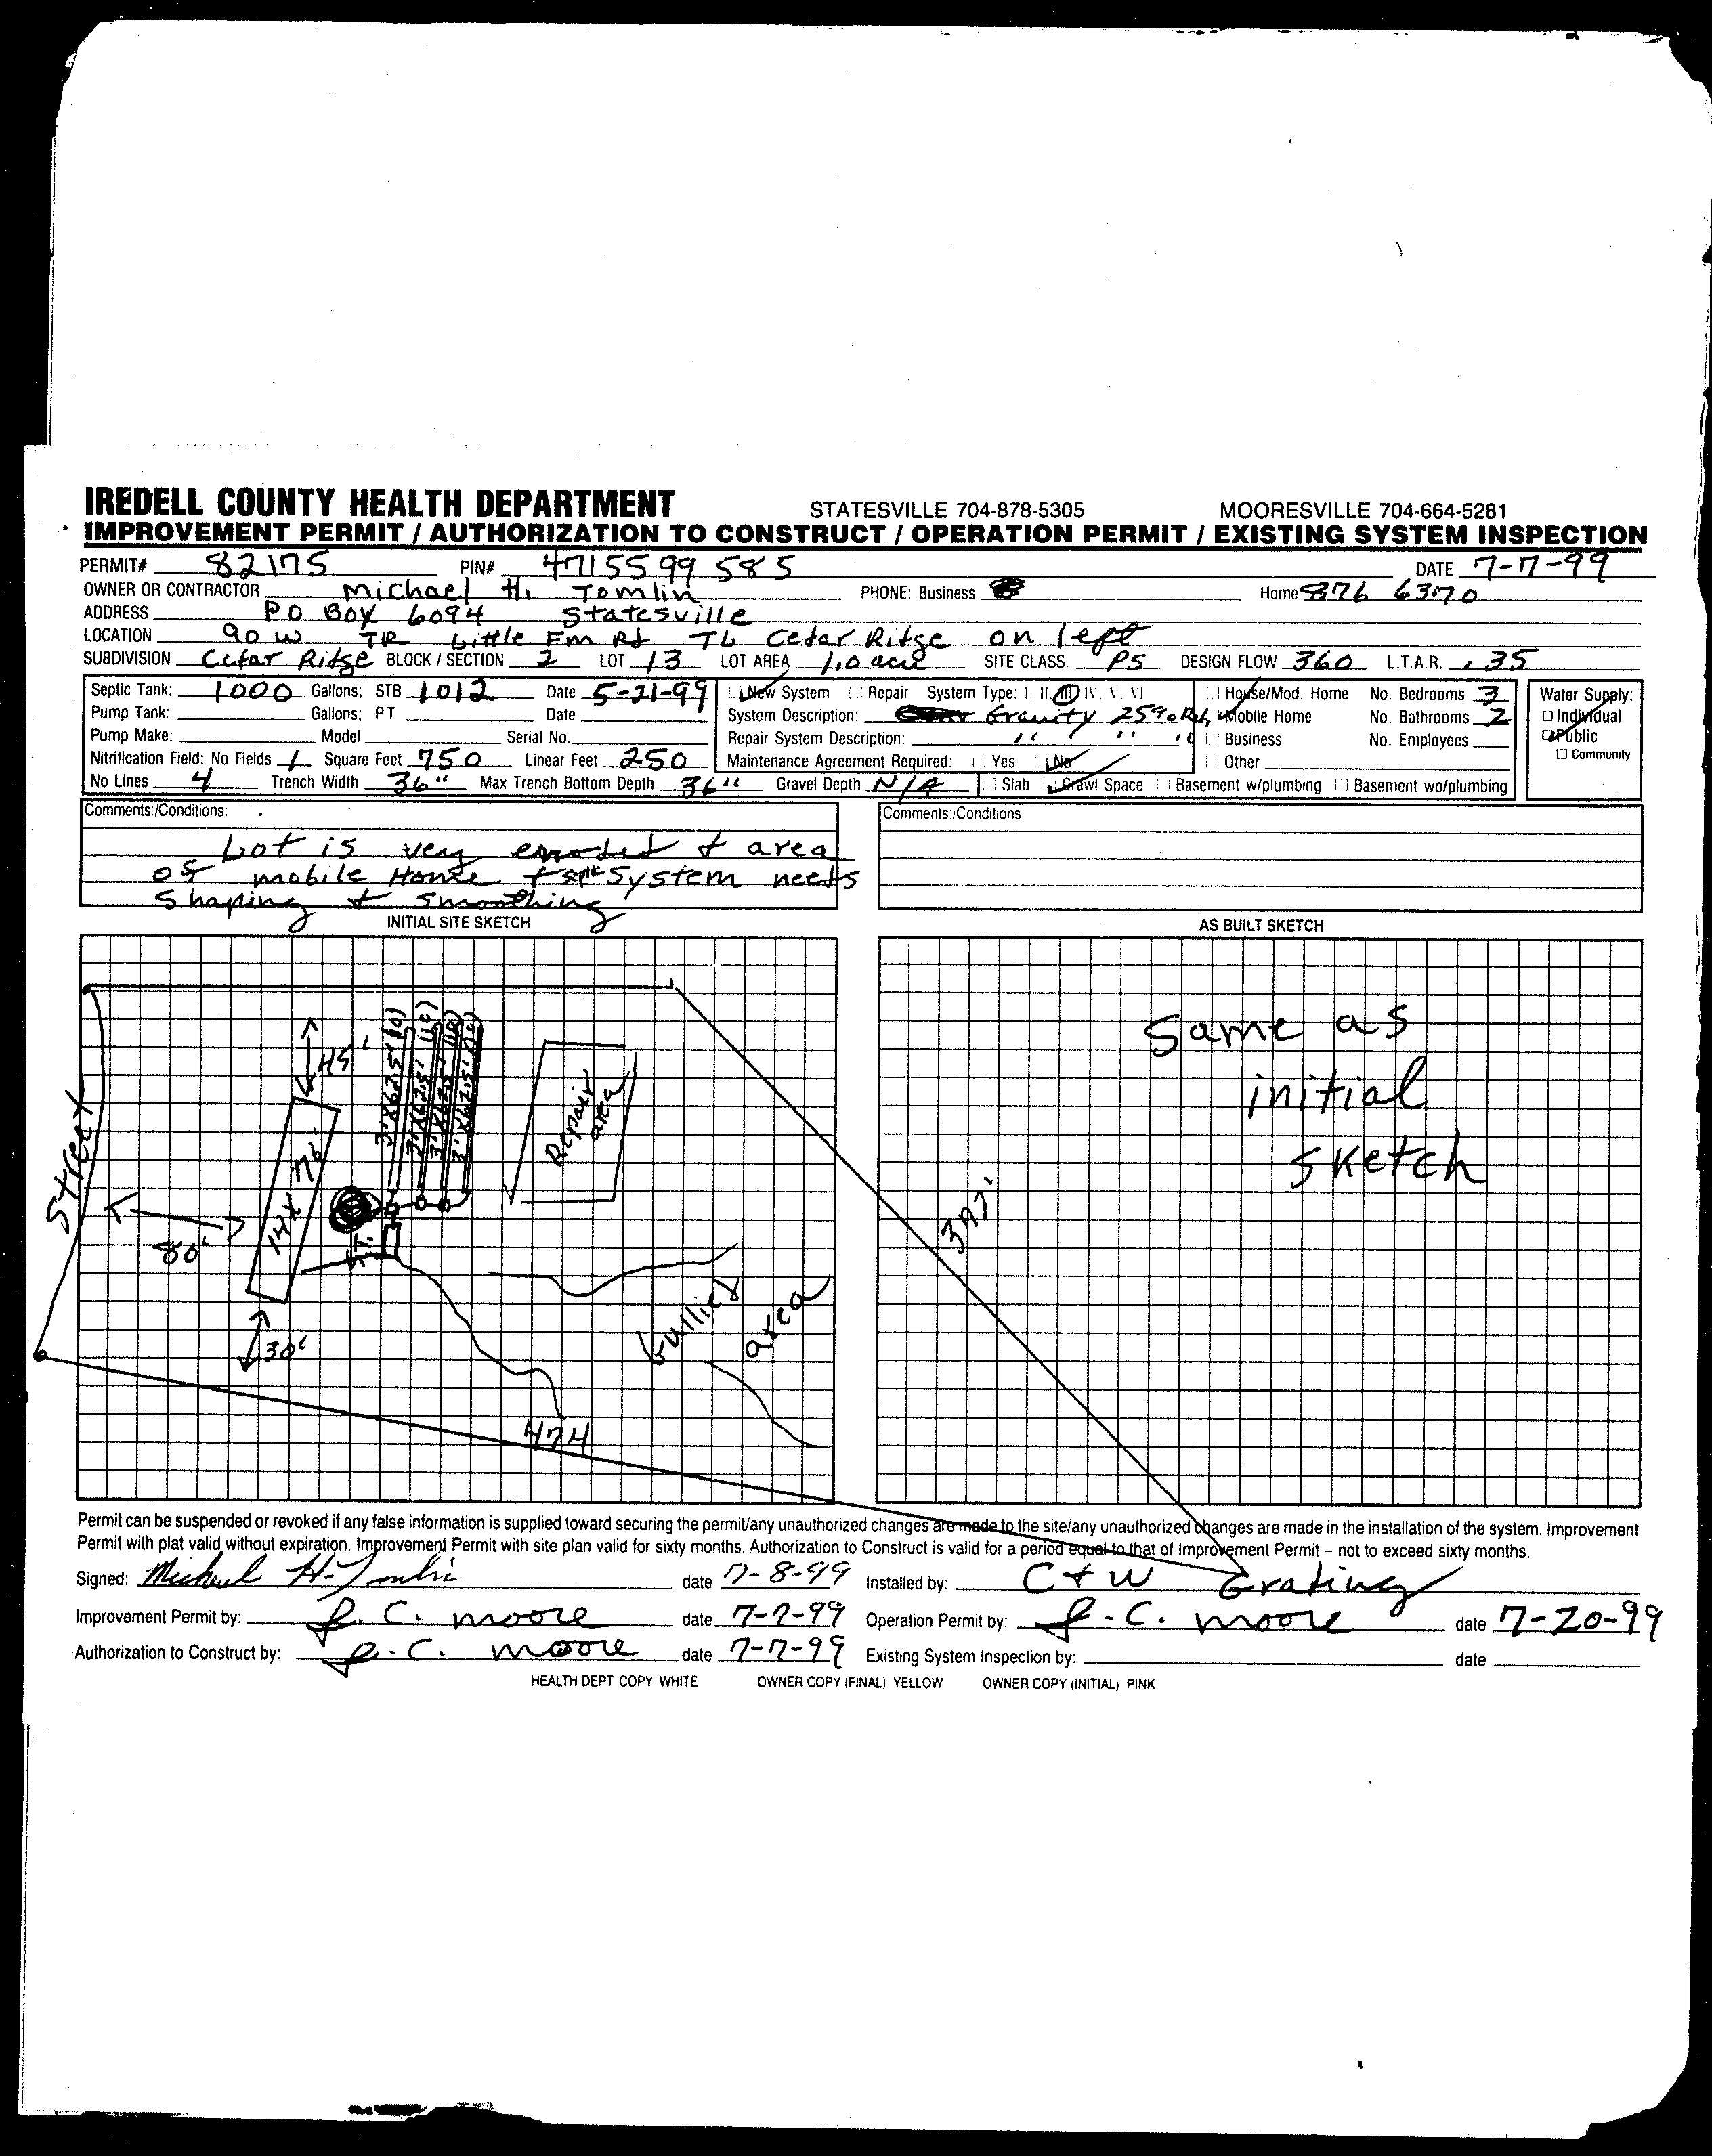 IREDELL COUNTY HEALTH DEPARTMENT STATESVILLE 704-878-5305 MOORESVILLE 704-664-5281
IMPROVEMENT PERMIT / AUTHORIZATION TO CONSTRUCT / OPERATION PERMIT / EXISTING SYSTEM INSPECTION
PERMIT# 82175 PIN# 4715599585 DATE 7-7-99
OWNER OR CONTRACTOR Michael H. Tomlin PHONE: Business Home 876 6370
ADDRESS PO Box 6094 Statesville
LOCATION 90 W TR Little Fm Rd TL Cedar Ridge on left
SUBDIVISION Cedar Ridge BLOCK / SECTION 2 LOT 13 LOT AREA 1.0 acre SITE CLASS PS DESIGN FLOW 360 L.T.A.R. .35
Septic Tank: 1000 Gallons; STB 1012 Date 5-21-99 New System Repair System Type: I, II, III, IV, V, VI House/Mod. Home No. Bedrooms 3 Water Supply:
Pump Tank: Gallons; PT Date System Description: Gravity 25% Red. Mobile Home No. Bathrooms 2 Individual
Pump Make: Model Serial No. Repair System Description: " " " " Business No. Employees Public
Nitrification Field: No Fields 1 Square Feet 750 Linear Feet 250 Maintenance Agreement Required: Yes No Other Community
No Lines 4 Trench Width 36" Max Trench Bottom Depth 36" Gravel Depth N/A Slab Crawl Space Basement w/plumbing Basement wo/plumbing
Comments/Conditions: Comments/Conditions:
Lot is very eroded + area
of mobile Home + sept system needs
shaping + smoothing
INITIAL SITE SKETCH AS BUILT SKETCH
Street
45'
3'X62.5' (0)
3'X62.5'
3'X62.5'
3'X62.5'
Repair
area
14X76'
80'
30'
S.T.
Gullied
area
474
397'
Same as
initial
sketch
Permit can be suspended or revoked if any false information is supplied toward securing the permit/any unauthorized changes are made to the site/any unauthorized changes are made in the installation of the system. Improvement
Permit with plat valid without expiration. Improvement Permit with site plan valid for sixty months. Authorization to Construct is valid for a period equal to that of Improvement Permit – not to exceed sixty months.
Signed: Michael H. Tomlin date 7-8-99 Installed by: C + W Grading
Improvement Permit by: R. C. Moore date 7-7-99 Operation Permit by: R. C. Moore date 7-20-99
Authorization to Construct by: R. C. Moore date 7-7-99 Existing System Inspection by: date
HEALTH DEPT COPY WHITE OWNER COPY (FINAL) YELLOW OWNER COPY (INITIAL) PINK